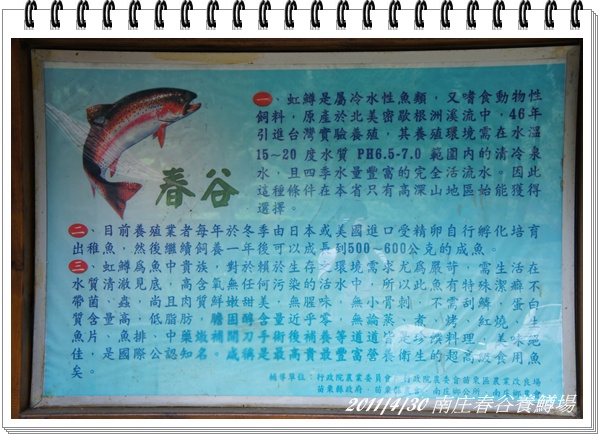 春谷
一、虹鱒是屬冷水性魚類，又嗜食動物性
飼料，原產於北美密歇根洲溪流中，46年
引進台灣實驗養殖，其養殖環境需在水溫
15~20 度水質 PH6.5-7.0 範圍內的清冷泉
水，且四季水量豐富的完全活流水。因此
這種條件在本省只有高深山地區始能獲得
選擇。
二、目前養殖業者每年於冬季由日本或美國進口受精卵自行孵化培育
出稚魚，然後繼續飼養一年後可以成長到500~600公克的成魚。
三、虹鱒為魚中貴族，對於賴於生存之環境需求尤為嚴苛，需生活在
水質清澈見底，高含氧無任何污染的活水中，所以此魚有特殊潔癖不
帶菌、蟲，尚且肉質鮮嫩甜美，無腥味，無小骨刺，不需刮鱗，蛋白
質含量高，低脂肪，膽固醇含量近乎零，無論蒸、煮、烤、紅燒、生
魚片、魚排、中藥燉補開刀手術後補養等道道皆是珍饌料理，美味絕
佳，是國際公認知名。咸稱是最高貴最豐富營養衛生的超高級食用魚
矣。
輔導單位：行政院農業委員會 行政院農委會苗栗區農業改良場
苗栗縣政府
2011/4/30 南庄春谷養鱒場